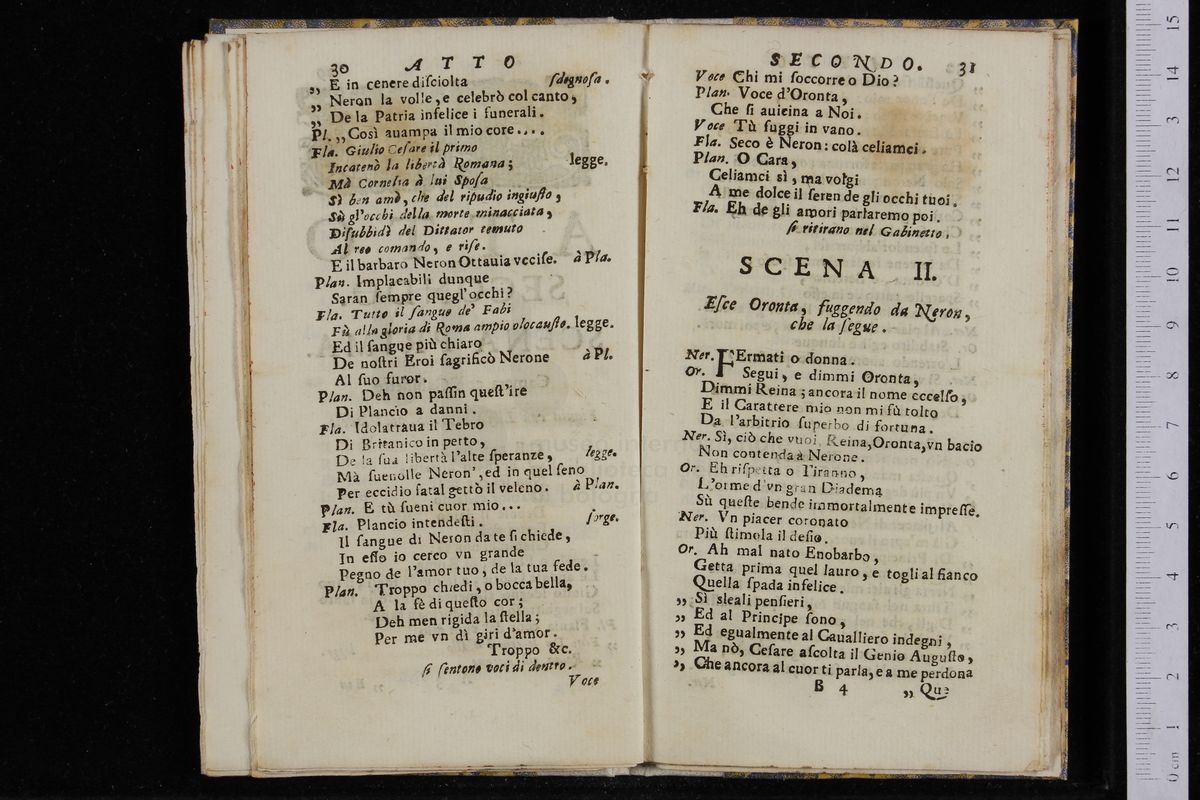 30 ATTO
„ E in cenere disciolta sdegnosa.
„ Neron la volle, e celebrò col canto,
„ De la Patria infelice i funerali.
Pl. „ Così auampa il mio core....
Fla. Giulio Cesare il primo
Incatenò la libertà Romana; legge.
Mà Cornelia à lui Sposa
Sì ben amò, che del ripudio ingiusto,
Sù gl'occhi della morte minacciata,
Disubbidì del Dittator temuto
Al reo comando, e rise.
E il barbaro Neron Ottauia vccise. à Pla.
Plan. Implacabili dunque
Saran sempre quegl'occhi?
Fla. Tutto il sangue de' Fabi
Fù alla gloria di Roma ampio olocausto. legge.
Ed il sangue più chiaro
De nostri Eroi sagrificò Nerone à Pl.
Al suo furor.
Plan. Deh non passin quest'ire
Di Plancio a danni.
Fla. Idolatraua il Tebro
Di Britanico in petto,
De la sua libertà l'alte speranze, legge.
Mà suenolle Neron', ed in quel seno
Per eccidio fatal gettò il veleno. à Plan.
Plan. E tù sueni cuor mio...
Fla. Plancio intendesti. sorge.
Il sangue di Neron da te si chiede,
In esso io cerco vn grande
Pegno de l'amor tuo, de la tua fede.
Plan. Troppo chiedi, o bocca bella,
A la fè di questo cor;
Deh men rigida la stella;
Per me vn dì giri d'amor.
Troppo &c.
si sentono voci di dentro.
Voce
SECONDO. 31
Voce Chi mi soccorre o Dio?
Plan. Voce d'Oronta,
Che si auicina a Noi.
Voce Tù fuggi in vano.
Fla. Seco è Neron: colà celiamci.
Plan. O Cara,
Celiamci sì, ma volgi
A me dolce il seren de gli occhi tuoi.
Fla. Eh de gli amori parlaremo poi.
si ritirano nel Gabinetto.
SCENA II.
Esce Oronta, fuggendo da Neron,
che la segue.
Ner. FErmati o donna.
Or. Segui, e dimmi Oronta,
Dimmi Reina; ancora il nome eccelso,
E il Carattere mio non mi fù tolto
Da l'arbitrio superbo di fortuna.
Ner. Sì, ciò che vuoi, Reina, Oronta, vn bacio
Non contenda à Nerone.
Or. Eh rispetta o Tiranno,
L'orme d'vn gran Diadema
Sù queste bende immortalmente impresse.
Ner. Vn piacer coronato
Più stimola il desio.
Or. Ah mal nato Enobarbo,
Getta prima quel lauro, e togli al fianco
Quella spada infelice.
„ Sì sleali pensieri,
„ Ed al Principe sono,
„ Ed egualmente al Caualliero indegni,
„ Ma nò, Cesare ascolta il Genio Augusto,
„ Che ancora al cuor ti parla, e a me perdona
B 4 „ Que